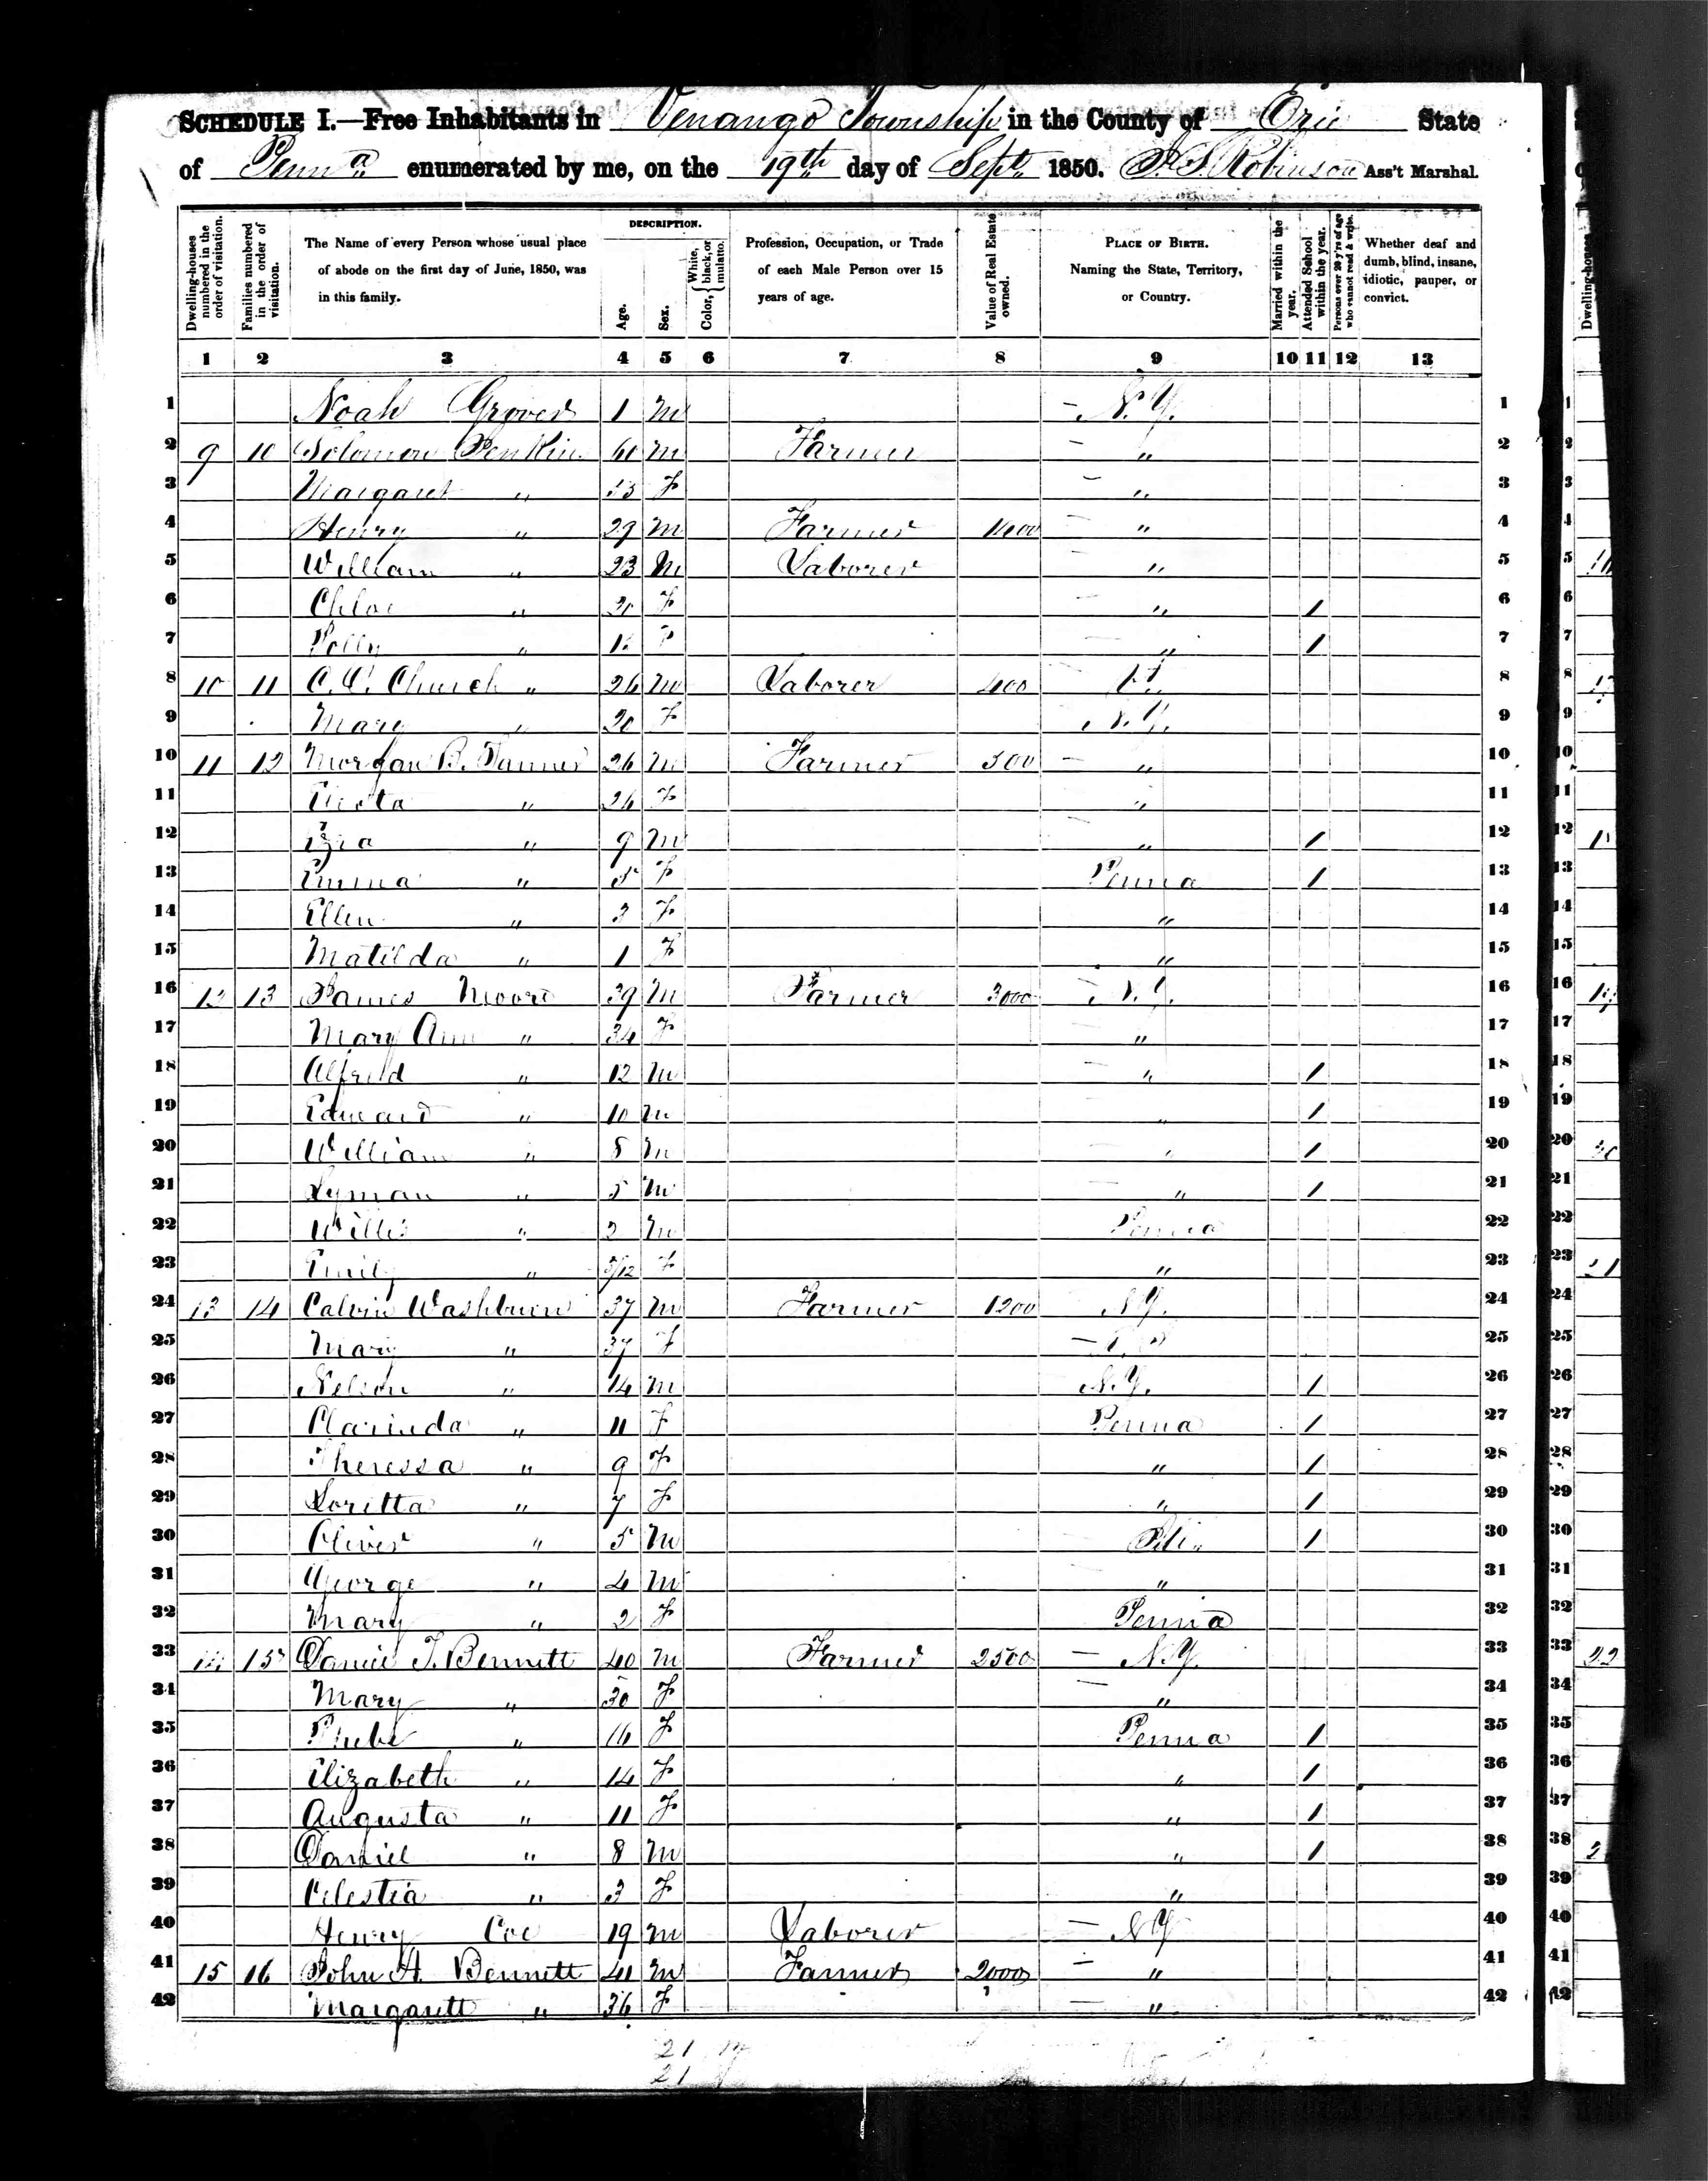 SCHEDULE I.—Free Inhabitants in Venango Township in the County of Erie State
of Penna enumerated by me, on the 19th day of Sept 1850. Robinson Ass't Marshal.
Dwelling-houses numbered in the order of visitation.
Families numbered in the order of visitation.
The Name of every Person whose usual place of abode on the first day of June, 1850, was in this family.
DESCRIPTION.
Age.
Sex.
Color, { White, black, or mulatto.
Profession, Occupation, or Trade of each Male Person over 15 years of age.
Value of Real Estate owned.
PLACE OF BIRTH. Naming the State, Territory, or Country.
Married within the year.
Attended School within the year.
Persons over 20 y'rs of age who cannot read & write.
Whether deaf and dumb, blind, insane, idiotic, pauper, or convict.
1 2 3 4 5 6 7 8 9 10 11 12 13
1 Noah Grover 1 M — N.Y. 1
2 9 10 Solomon 60 M Farmer — " 2
3 Margaret " 53 F — " 3
4 Henry " 29 M Farmer — " 4
5 William " 23 M Laborer " 5
6 Chloe " F — " / 6
7 Polly " — " / 7
8 10 11 C.C. Church " 26 M Laborer 400 Vt. 8
9 Mary " 20 F N.Y. 9
10 11 12 Morgan B. Tanner 26 M Farmer 500 — " 10
11 " 26 F " 11
12 Ezra " 9 M — " / 12
13 Emma " 5 F Penna / 13
14 Ellen " 3 F " 14
15 Matilda " 1 F " 15
16 12 13 James Moore 39 M Farmer 3000 — N.Y. 16
17 Mary Ann " 34 F — " 17
18 Alfred " 12 M — " / 18
19 Edward " 10 M — " / 19
20 William " 8 M — " / 20
21 Lyman " 5 M — " / 21
22 Willis " 2 M Penna 22
23 Emily " 5/12 F " 23
24 13 14 Calvin Washburn 37 M Farmer 1200 N.Y. 24
25 Mary " 37 F — 25
26 Nelson " 14 M N.Y. / 26
27 Clarinda " 11 F Penna / 27
28 Theressa " 9 F " / 28
29 Loritta " 7 F " / 29
30 Oliver " 5 M / 30
31 George " 4 M " 31
32 Mary " 2 F Penna 32
33 14 15 Daniel T. Bennett 40 M Farmer 2500 — N.Y. 33
34 Mary " 30 F — " 34
35 Phebe " 16 F Penna / 35
36 Elizabeth " 14 F " / 36
37 Augusta " 11 F " / 37
38 Daniel " 8 M " / 38
39 Celestia " 3 F " 39
40 Henry Coe 19 M Laborer — N.Y. 40
41 15 16 John H. Bennett 41 M Farmer 2000 — " 41
42 Margarett " 36 F — " 42
21 M
21